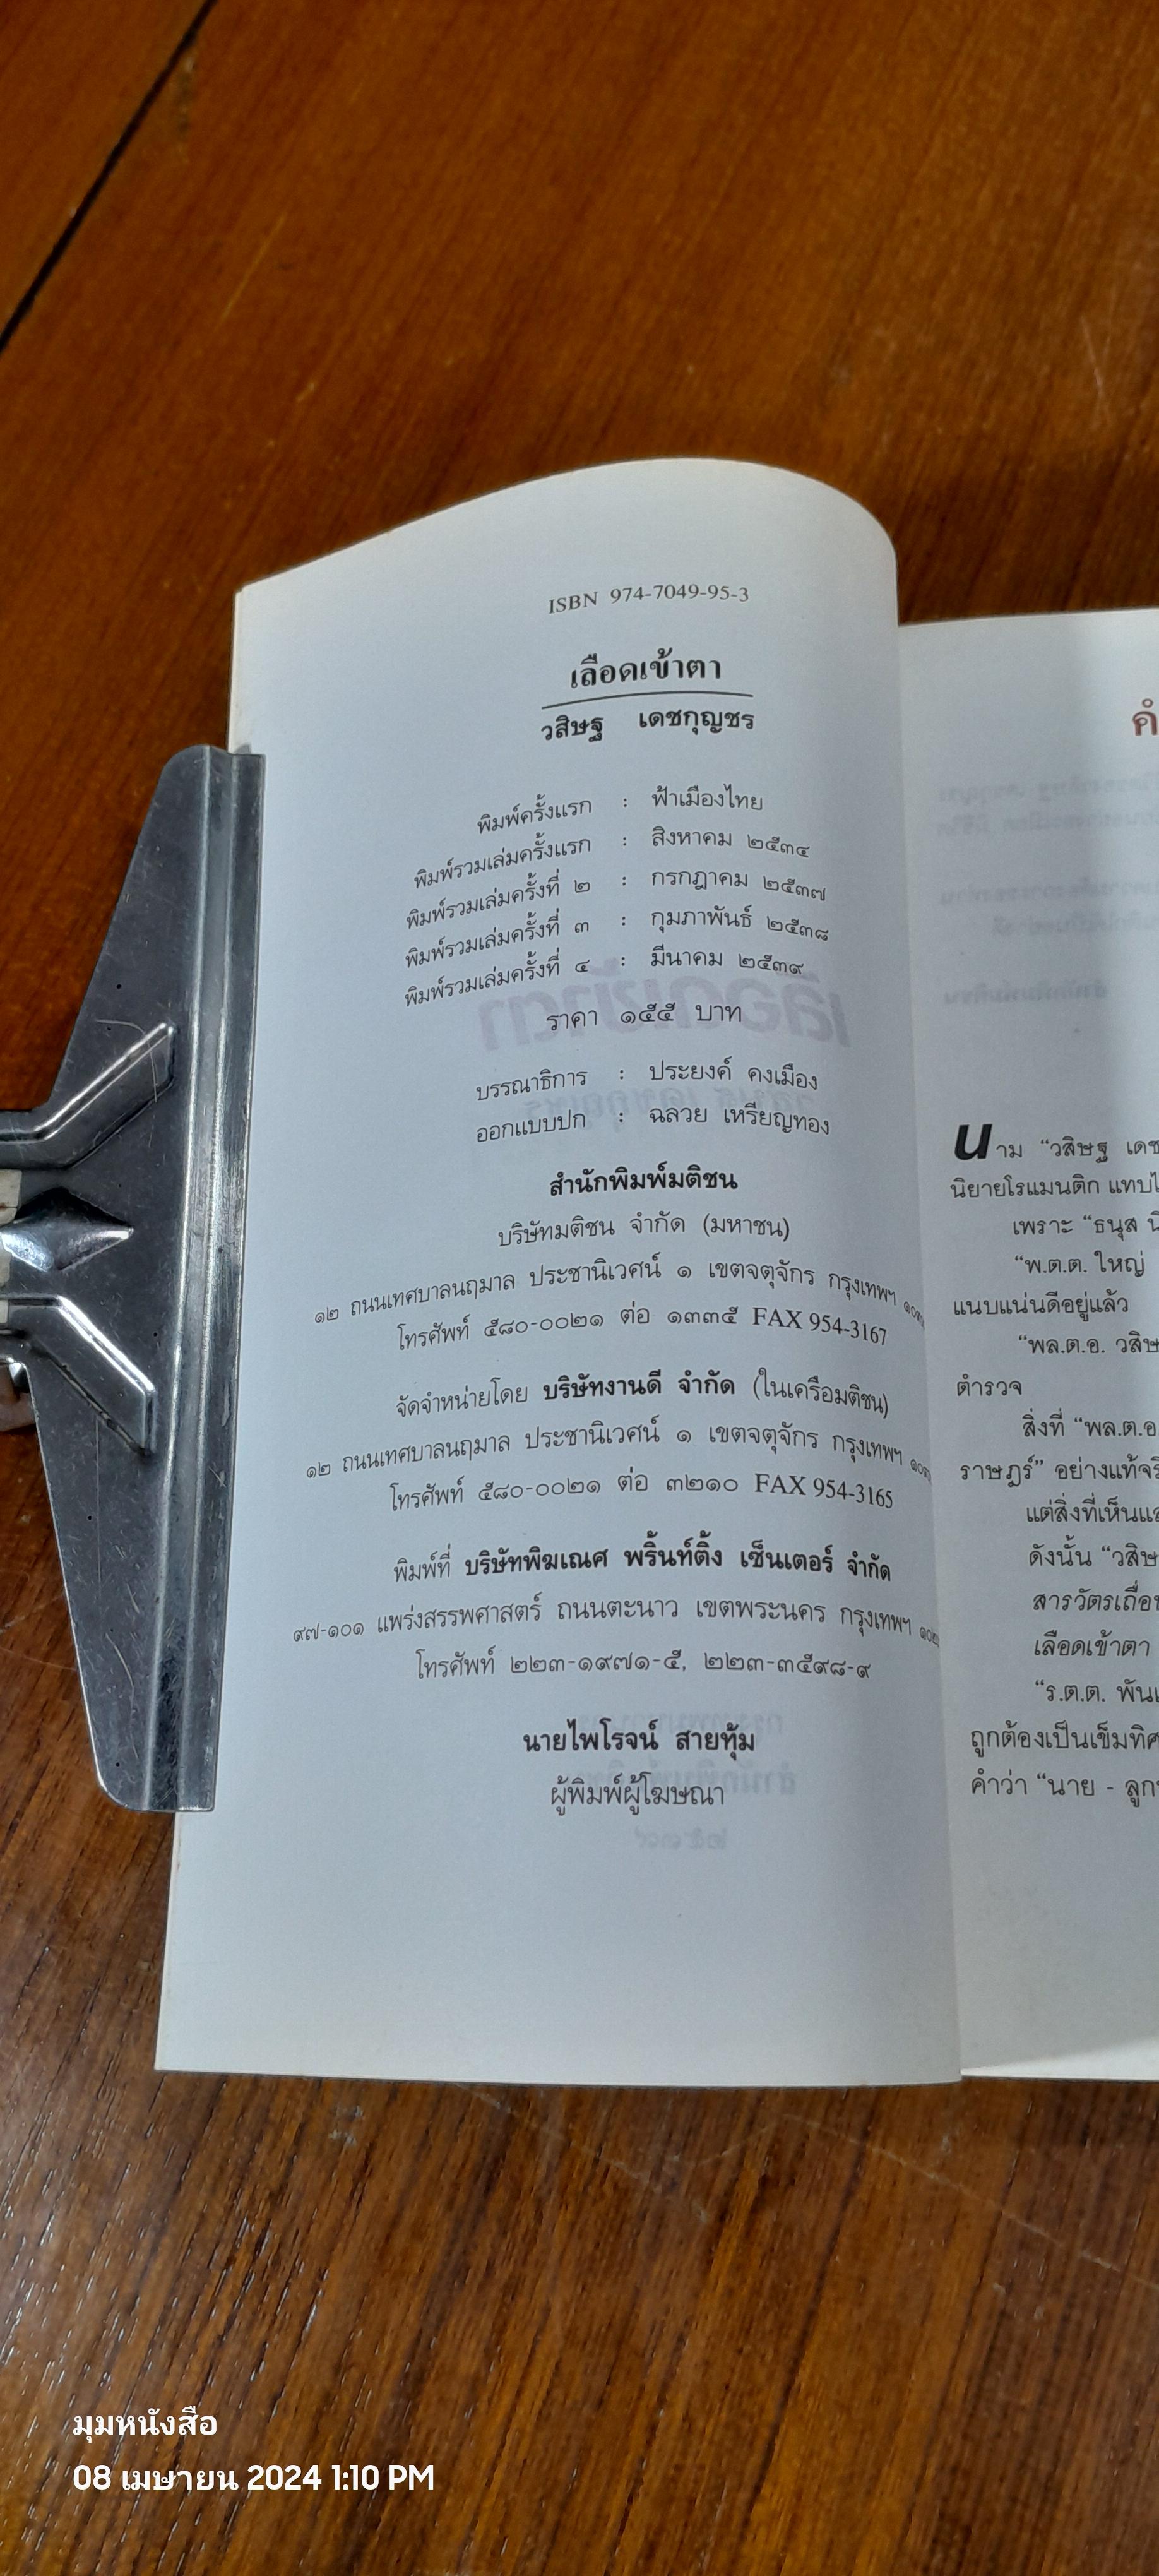 ISBN 974-7049-95-3
เลือดเข้าตา
วสิษฐ เดชกุญชร
พิมพ์ครั้งแรก : ฟ้าเมืองไทย
พิมพ์รวมเล่มครั้งแรก : สิงหาคม ๒๕๓๔
พิมพ์รวมเล่มครั้งที่ ๒ : กรกฎาคม ๒๕๓๗
พิมพ์รวมเล่มครั้งที่ ๓ : กุมภาพันธ์ ๒๕๓๘
พิมพ์รวมเล่มครั้งที่ ๔ : มีนาคม ๒๕๓๙
ราคา ๑๕๕ บาท
บรรณาธิการ : ประยงค์ คงเมือง
ออกแบบปก : ฉลวย เหรียญทอง
สำนักพิมพ์มติชน
บริษัทมติชน จำกัด (มหาชน)
๑๒ ถนนเทศบาลนฤมาล ประชานิเวศน์ ๑ เขตจตุจักร กรุงเทพฯ
โทรศัพท์ ๕๘๐-๐๐๒๑ ต่อ ๑๓๓๕ FAX 954-3167
จัดจำหน่ายโดย บริษัทงานดี จำกัด (ในเครือมติชน)
๑๒ ถนนเทศบาลนฤมาล ประชานิเวศน์ ๑ เขตจตุจักร กรุงเทพฯ
โทรศัพท์ ๕๘๐-๐๐๒๑ ต่อ ๓๒๑๐ FAX 954-3165
พิมพ์ที่ บริษัทพิฆเณศ พริ้นท์ติ้ง เซ็นเตอร์ จำกัด
๙๗-๑๐๑ แพร่งสรรพศาสตร์ ถนนตะนาว เขตพระนคร กรุงเทพฯ
โทรศัพท์ ๒๒๓-๑๙๗๑-๕, ๒๒๓-๓๕๙๘-๙
นายไพโรจน์ สายทุ้ม
ผู้พิมพ์ผู้โฆษณา
นาม “วสิษฐ เดช
นิยายโรแมนติก แทบไ
เพราะ “ธนุส นิ
“พ.ต.ต. ใหญ่
แนบแน่นดีอยู่แล้ว
“พล.ต.อ. วสิษ
ตำรวจ
สิ่งที่ “พล.ต.อ.
ราษฎร์” อย่างแท้จริ
แต่สิ่งที่เห็นแล
ดังนั้น “วสิษ
สารวัตรเถื่อน
เลือดเข้าตา
“ร.ต.ต. พันเ
ถูกต้องเป็นเข็มทิศ
คำว่า “นาย - ลูก
มุมหนังสือ
08 เมษายน 2024 1:10 PM